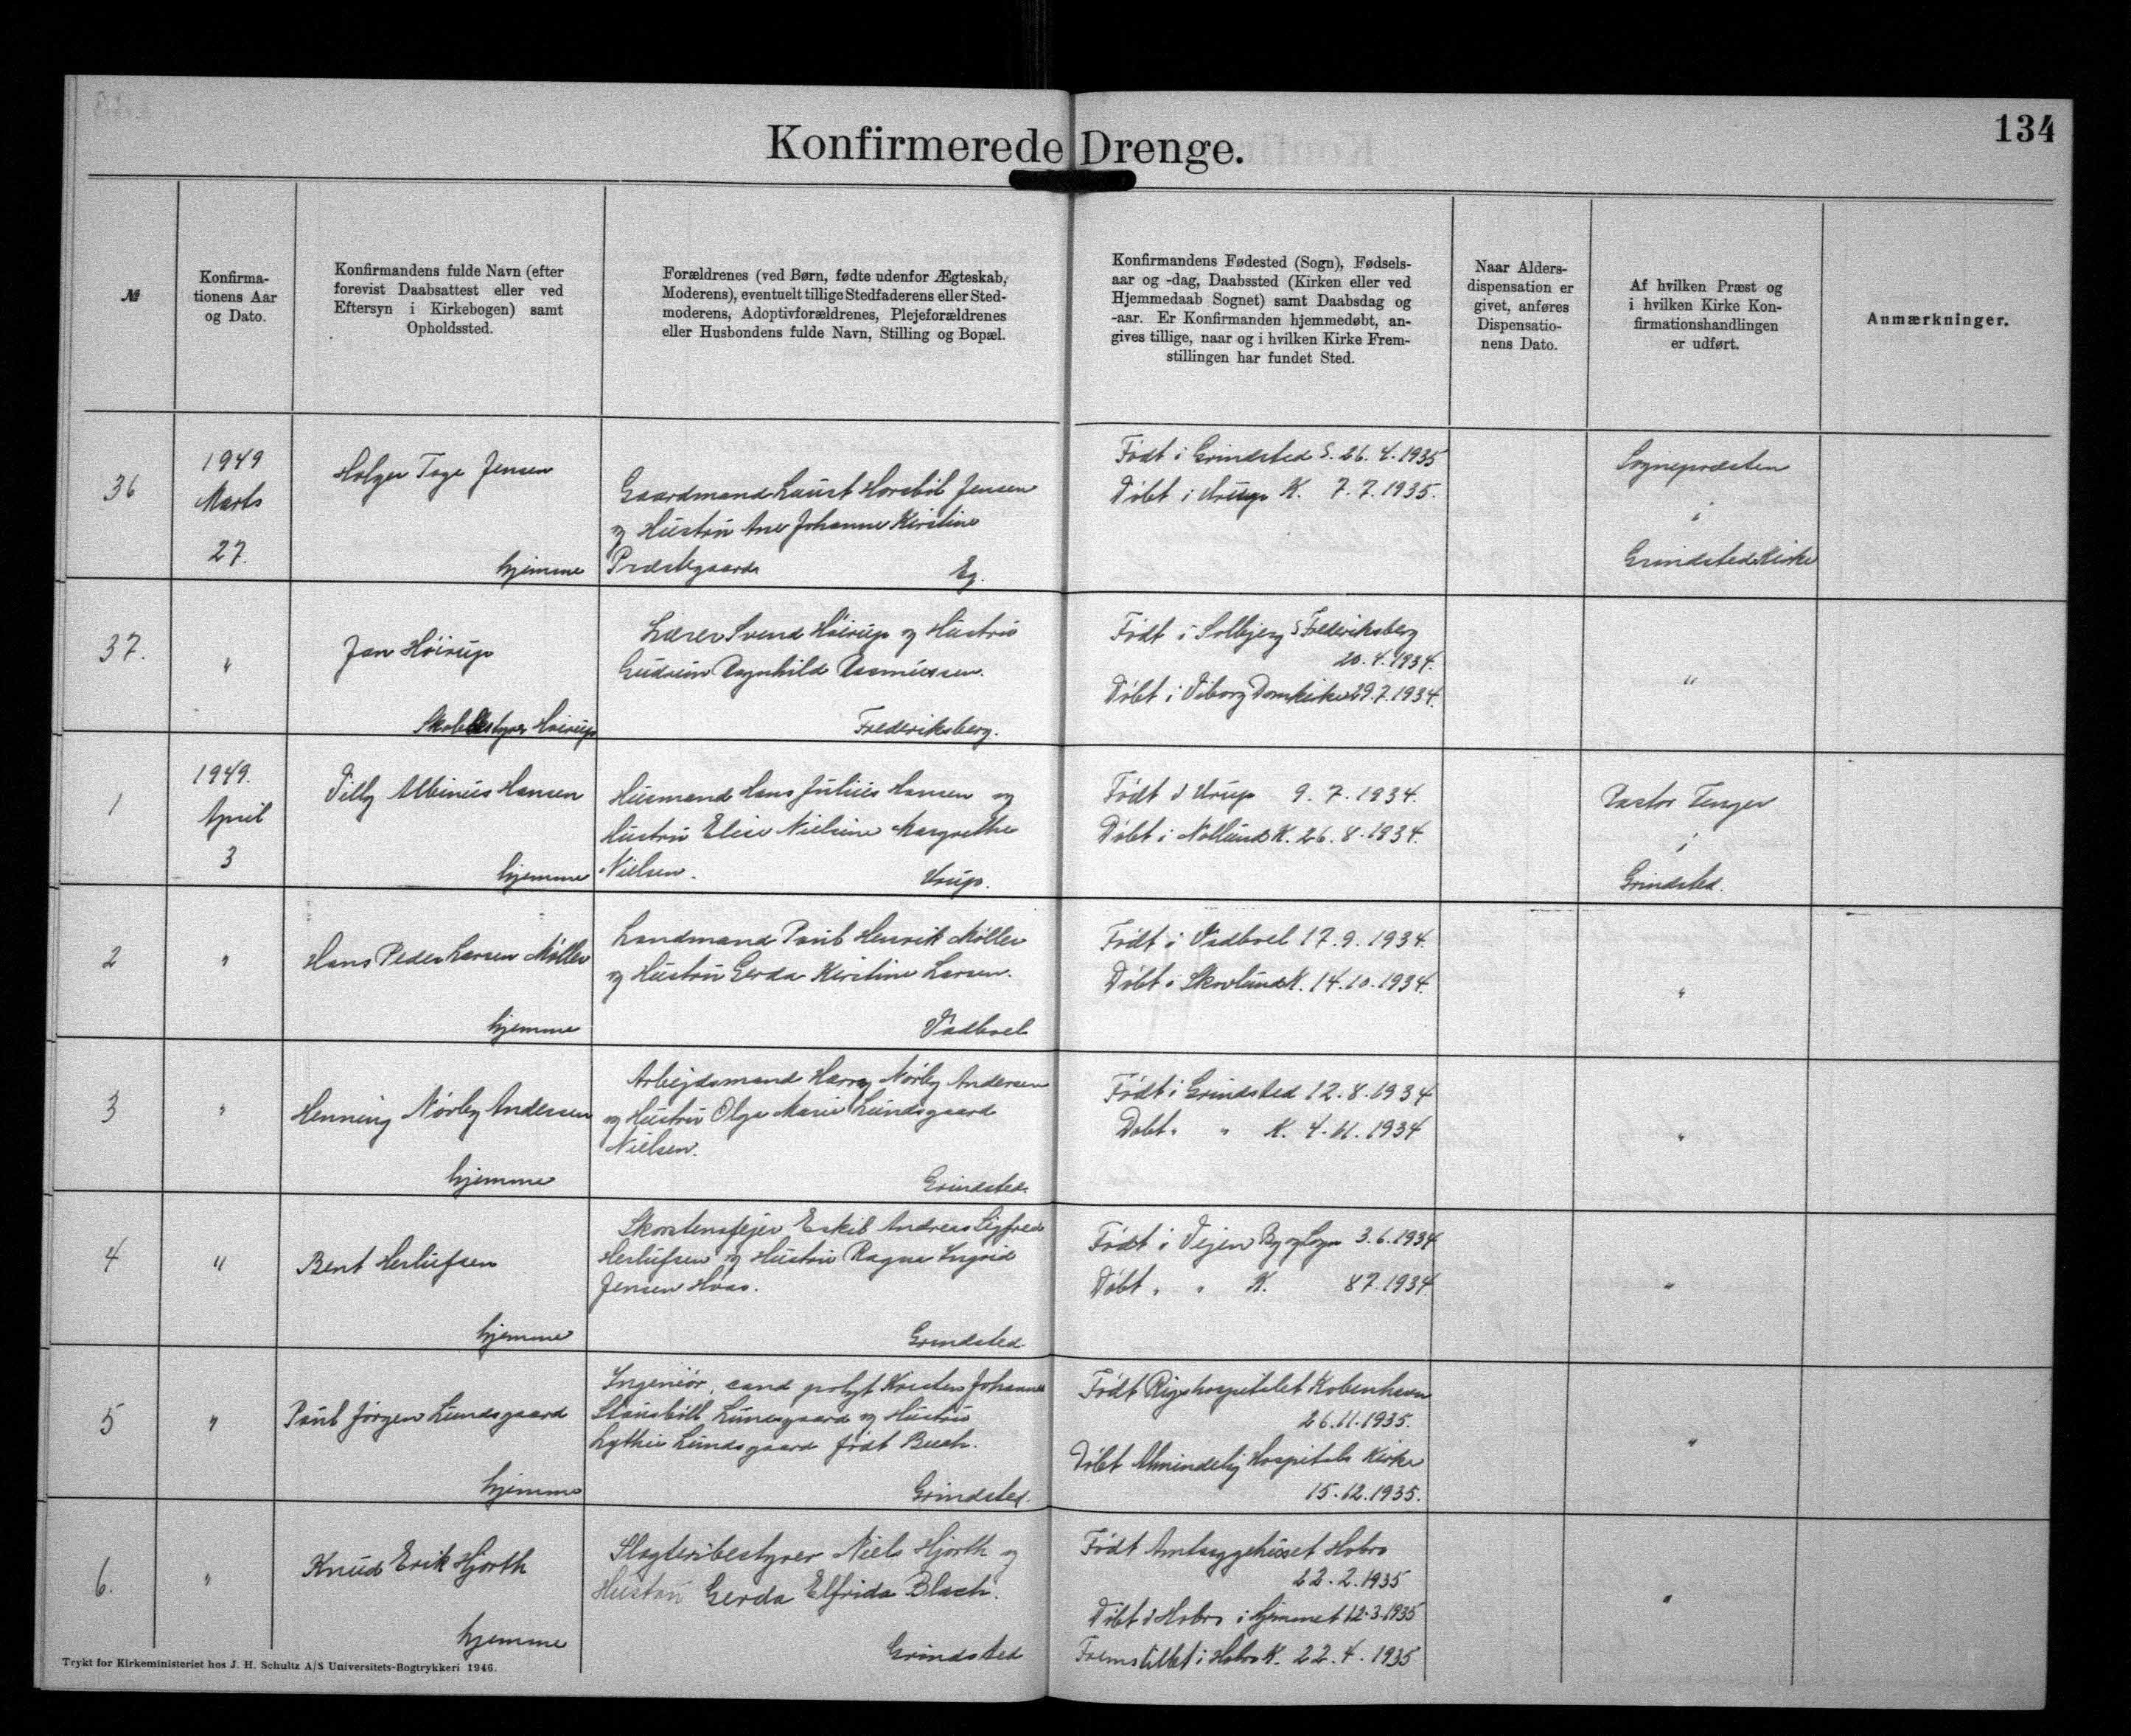 134
Konfirmerede Drenge.
№
Konfirma-
tionens Aar
og Dato.
Konfirmandens fulde Navn (efter
forevist Daabsattest eller ved
Eftersyn i Kirkebogen) samt
Opholdssted.
Forældrenes (ved Børn, fødte udenfor Ægteskab,
Moderens), eventuelt tillige Stedfaderens eller Sted-
moderens, Adoptivforældrenes, Plejeforældrenes
eller Husbondens fulde Navn, Stilling og Bopæl.
Konfirmandens Fødested (Sogn), Fødsels-
aar og -dag, Daabssted (Kirken eller ved
Hjemmedaab Sognet) samt Daabsdag og
-aar. Er Konfirmanden hjemmedøbt, an-
gives tillige, naar og i hvilken Kirke Frem-
stillingen har fundet Sted.
Naar Alders-
dispensation er
givet, anføres
Dispensatio-
nens Dato.
Af hvilken Præst og
i hvilken Kirke Kon-
firmationshandlingen
er udført.
Anmærkninger.
36
1949
Marts
27.
Holger Tage Jensen
hjemme
Gaardmand Laust Horsbøl Jensen
og Hustru Ane Johanne Kirstine
Præstegaard
Eg.
Født i Grindsted S. 26.4.1935
Døbt i Urup K. 7.7.1935.
Sognepræsten
i
Grindsted Kirke
37.
"
Jan Höirup
Skolebestyrer Höirup
Lærer Svend Höirup og Hustru
Gudrun Ragnhild Rasmussen.
Frederiksberg.
Født i Solbjerg S Frederiksberg
20.4.1934.
Døbt i Viborg Domkirke 29.7.1934.
"
1
1949.
April
3
Villy Albinus Hansen
hjemme
Husmand Hans Julius Hansen og
Hustru Elise Nielsine Margrethe
Nielsen.
Urup.
Født i Urup 9.7.1934.
Døbt i Nollund K. 26.8.1934.
Pastor Fenger
i
Grindsted.
2
"
Hans Peder Larsen Møller
hjemme
Landmand Poul Henrik Møller
og Hustru Gerda Kirstine Larsen.
Vadbæl
Født i Vadbæl 17.9.1934.
Døbt i Skovlund K. 14.10.1934.
"
3
"
Henning Nørby Andersen
hjemme
Arbejdsmand Harry Nørby Andersen
og Hustru Olga Marie Lundsgaard
Nielsen.
Grindsted.
Født i Grindsted 12.8.1934
Døbt " " K. 4.11.1934
"
4
"
Bent Herlufsen
hjemme
Skorstensfejer Eskil Andreas Sigfred
Herlufsen og Hustru Ragna Ingrid
Jensen Haas.
Grindsted.
Født i Vejen By og Sogn 3.6.1934
Døbt " " K. 8 7.1934.
"
5
"
Poul Jörgen Lundsgaard
hjemme
Ingeniör, cand polyt Kristen Johannes
Stausböll Lundsgaard og Hustru
Lythie Lundsgaard født Buch.
Grindsted.
Født Rigshospitalet København
26.11.1935.
Døbt Almindelig Hospitals Kirke
15.12.1935.
"
6.
"
Knud Erik Hjorth
hjemme
Slagteribestyrer Niels Hjorth og
Hustru Gerda Elfrida Blach.
Grindsted
Født Amtssygehuset Hobro
22.2.1935
Døbt i Hobro i Hjemmet 12.3.1935
Fremstillet i Hobro K. 22.4.1935
"
Trykt for Kirkeministeriet hos J. H. Schultz A/S Universitets-Bogtrykkeri 1946.